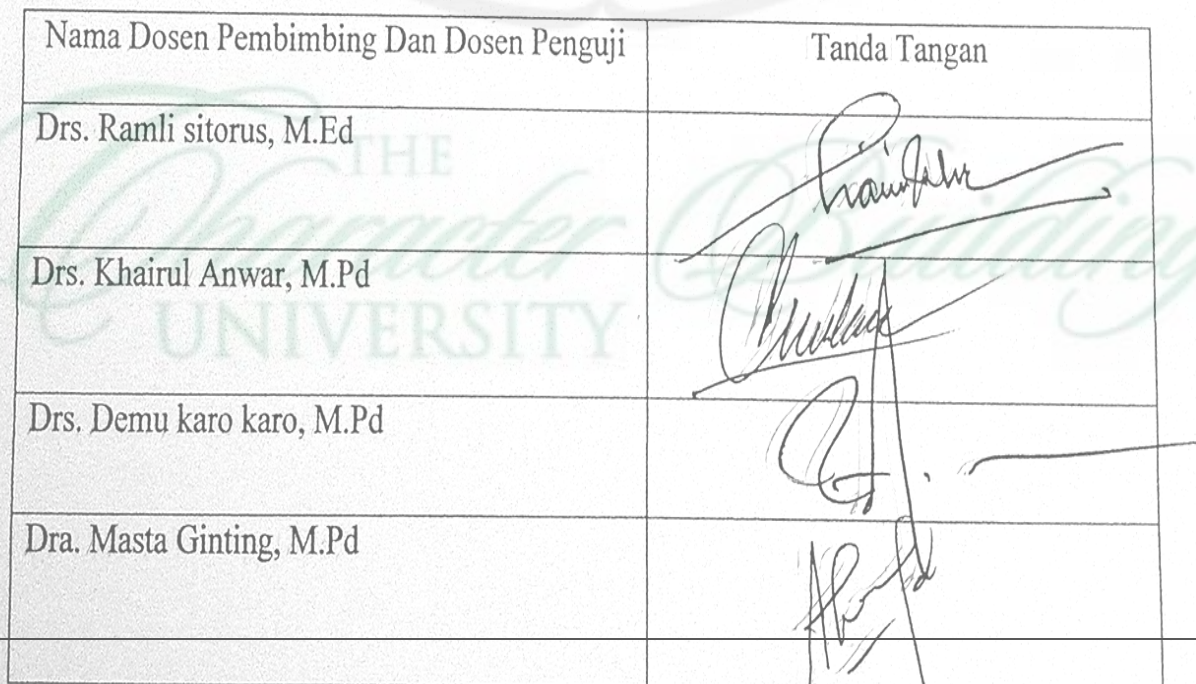 Nama Dosen Pembimbing Dan Dosen Penguji
Tanda Tangan
Drs. Ramli sitorus, M.Ed
Drs. Khairul Anwar, M.Pd
Drs. Demu karo karo, M.Pd
Dra. Masta Ginting, M.Pd
THE
Character Building
UNIVERSITY